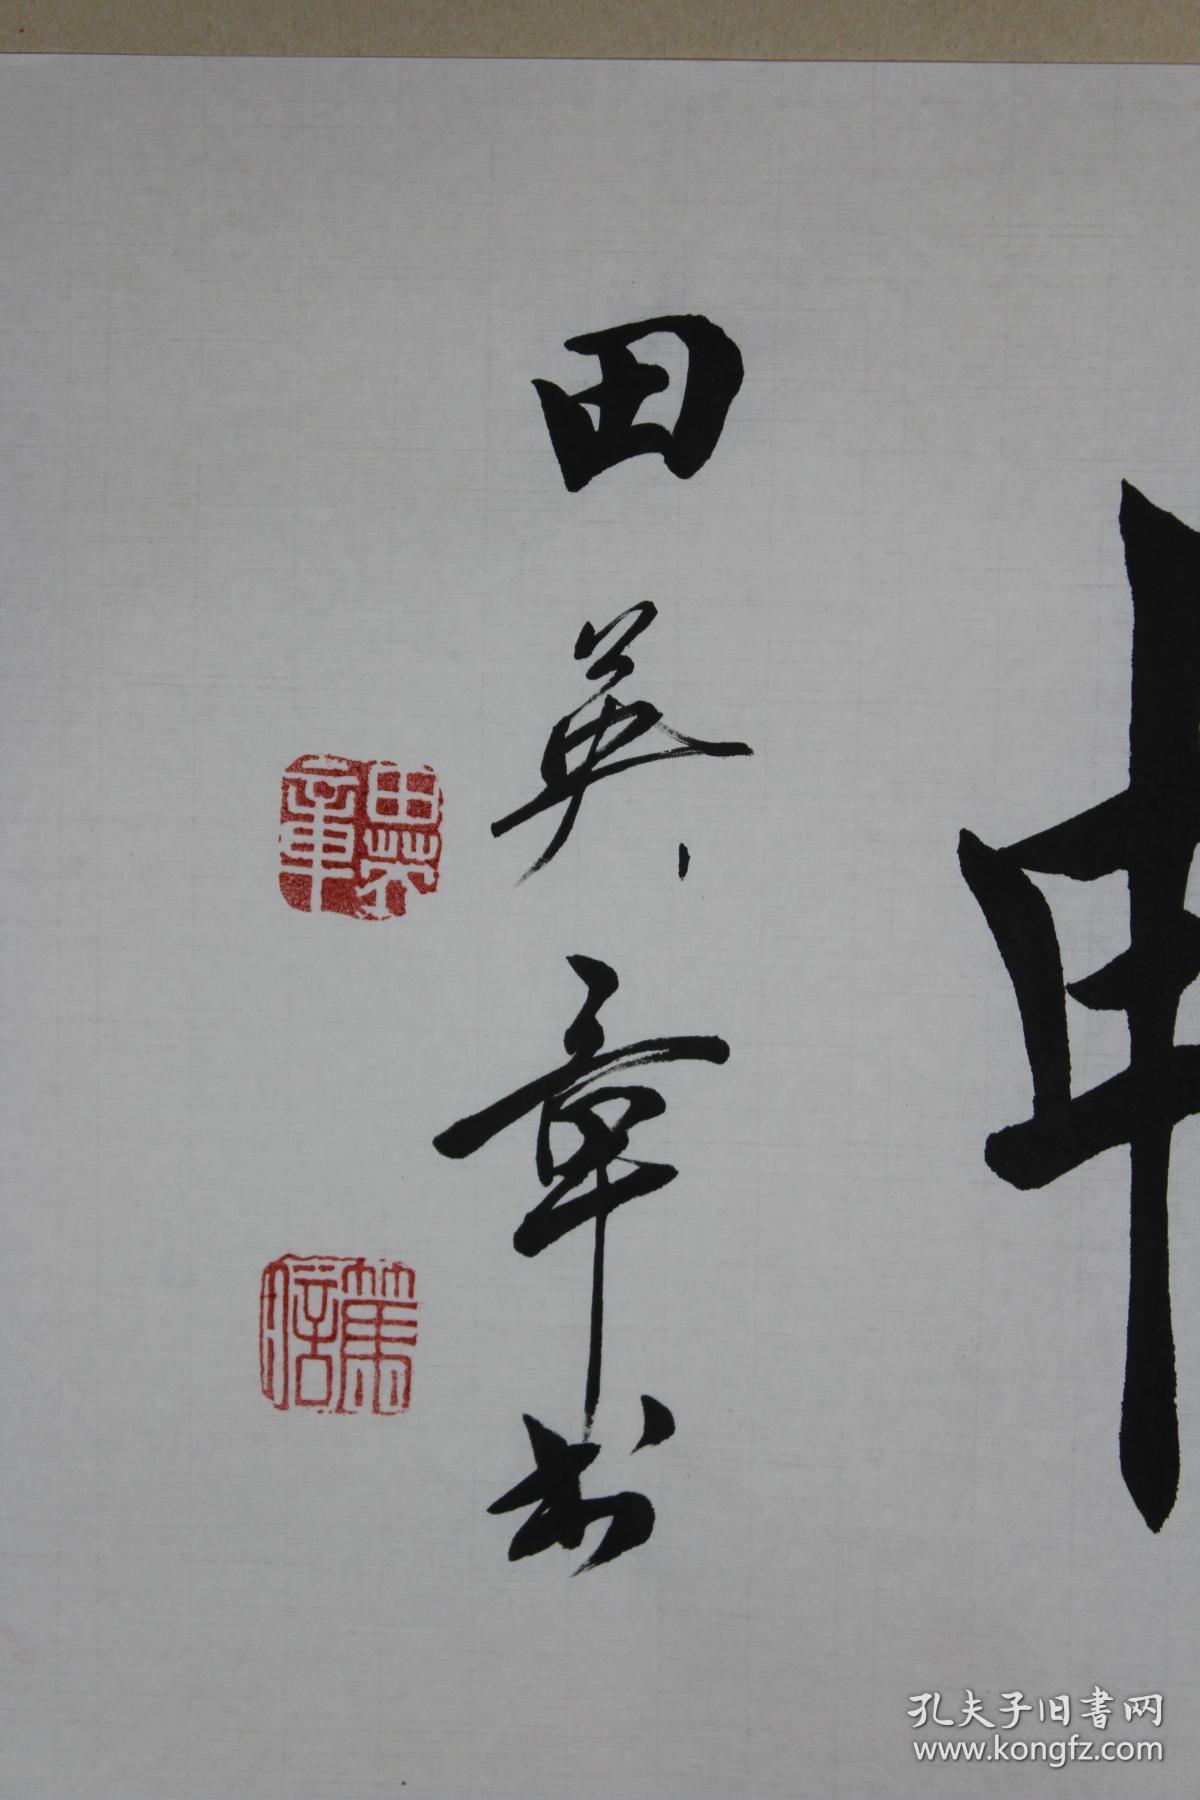 田英章书
田英章
孔夫子旧書网
www.kongfz.com